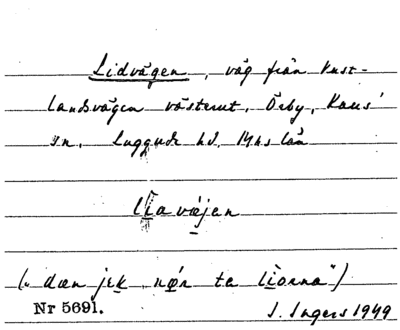 Lidvägen, väg från Kust-
landsvägen västerut, Örby, Kaus'
sn. Luggude hd. Mhs län
lia væjen
(„dæn jek nǿr te liorna")
Nr 5691. I. Ingers 1949